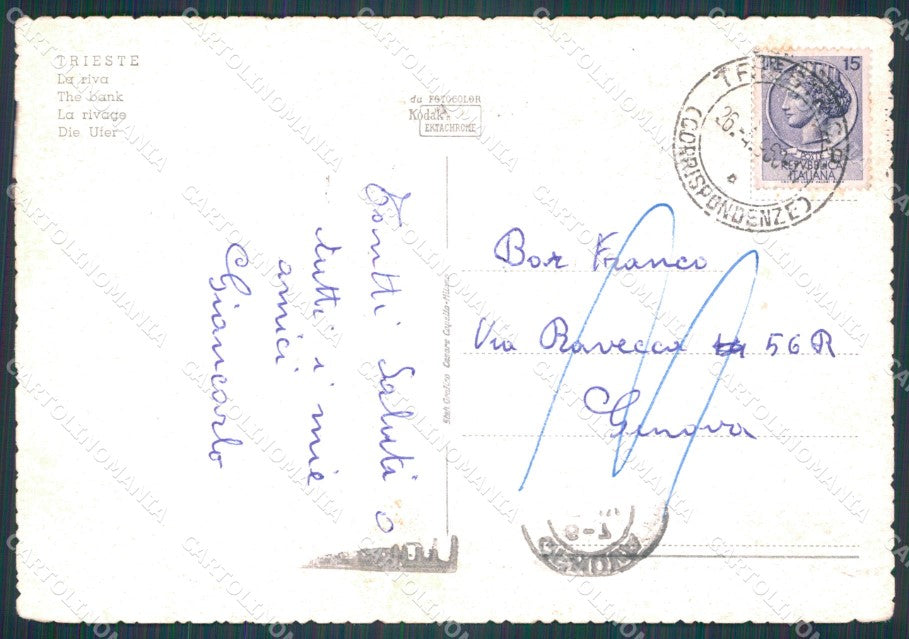 TRIESTE
La riva
The bank
La rivage
Die Uier
da FOTOCOLOR
Kodak
EKTACHROME
LIRE 15
POSTE
REPVBBLICA
ITALIANA
(CORRISPONDENZE)
Tontti saluti o
tutti i mie
amici
Giancarlo
Bar Franco
Via Ravecca 56 R
Genova
Stab. Grafico Cesare Capello-Milano
GENOVA
CARTOLINOMANIA